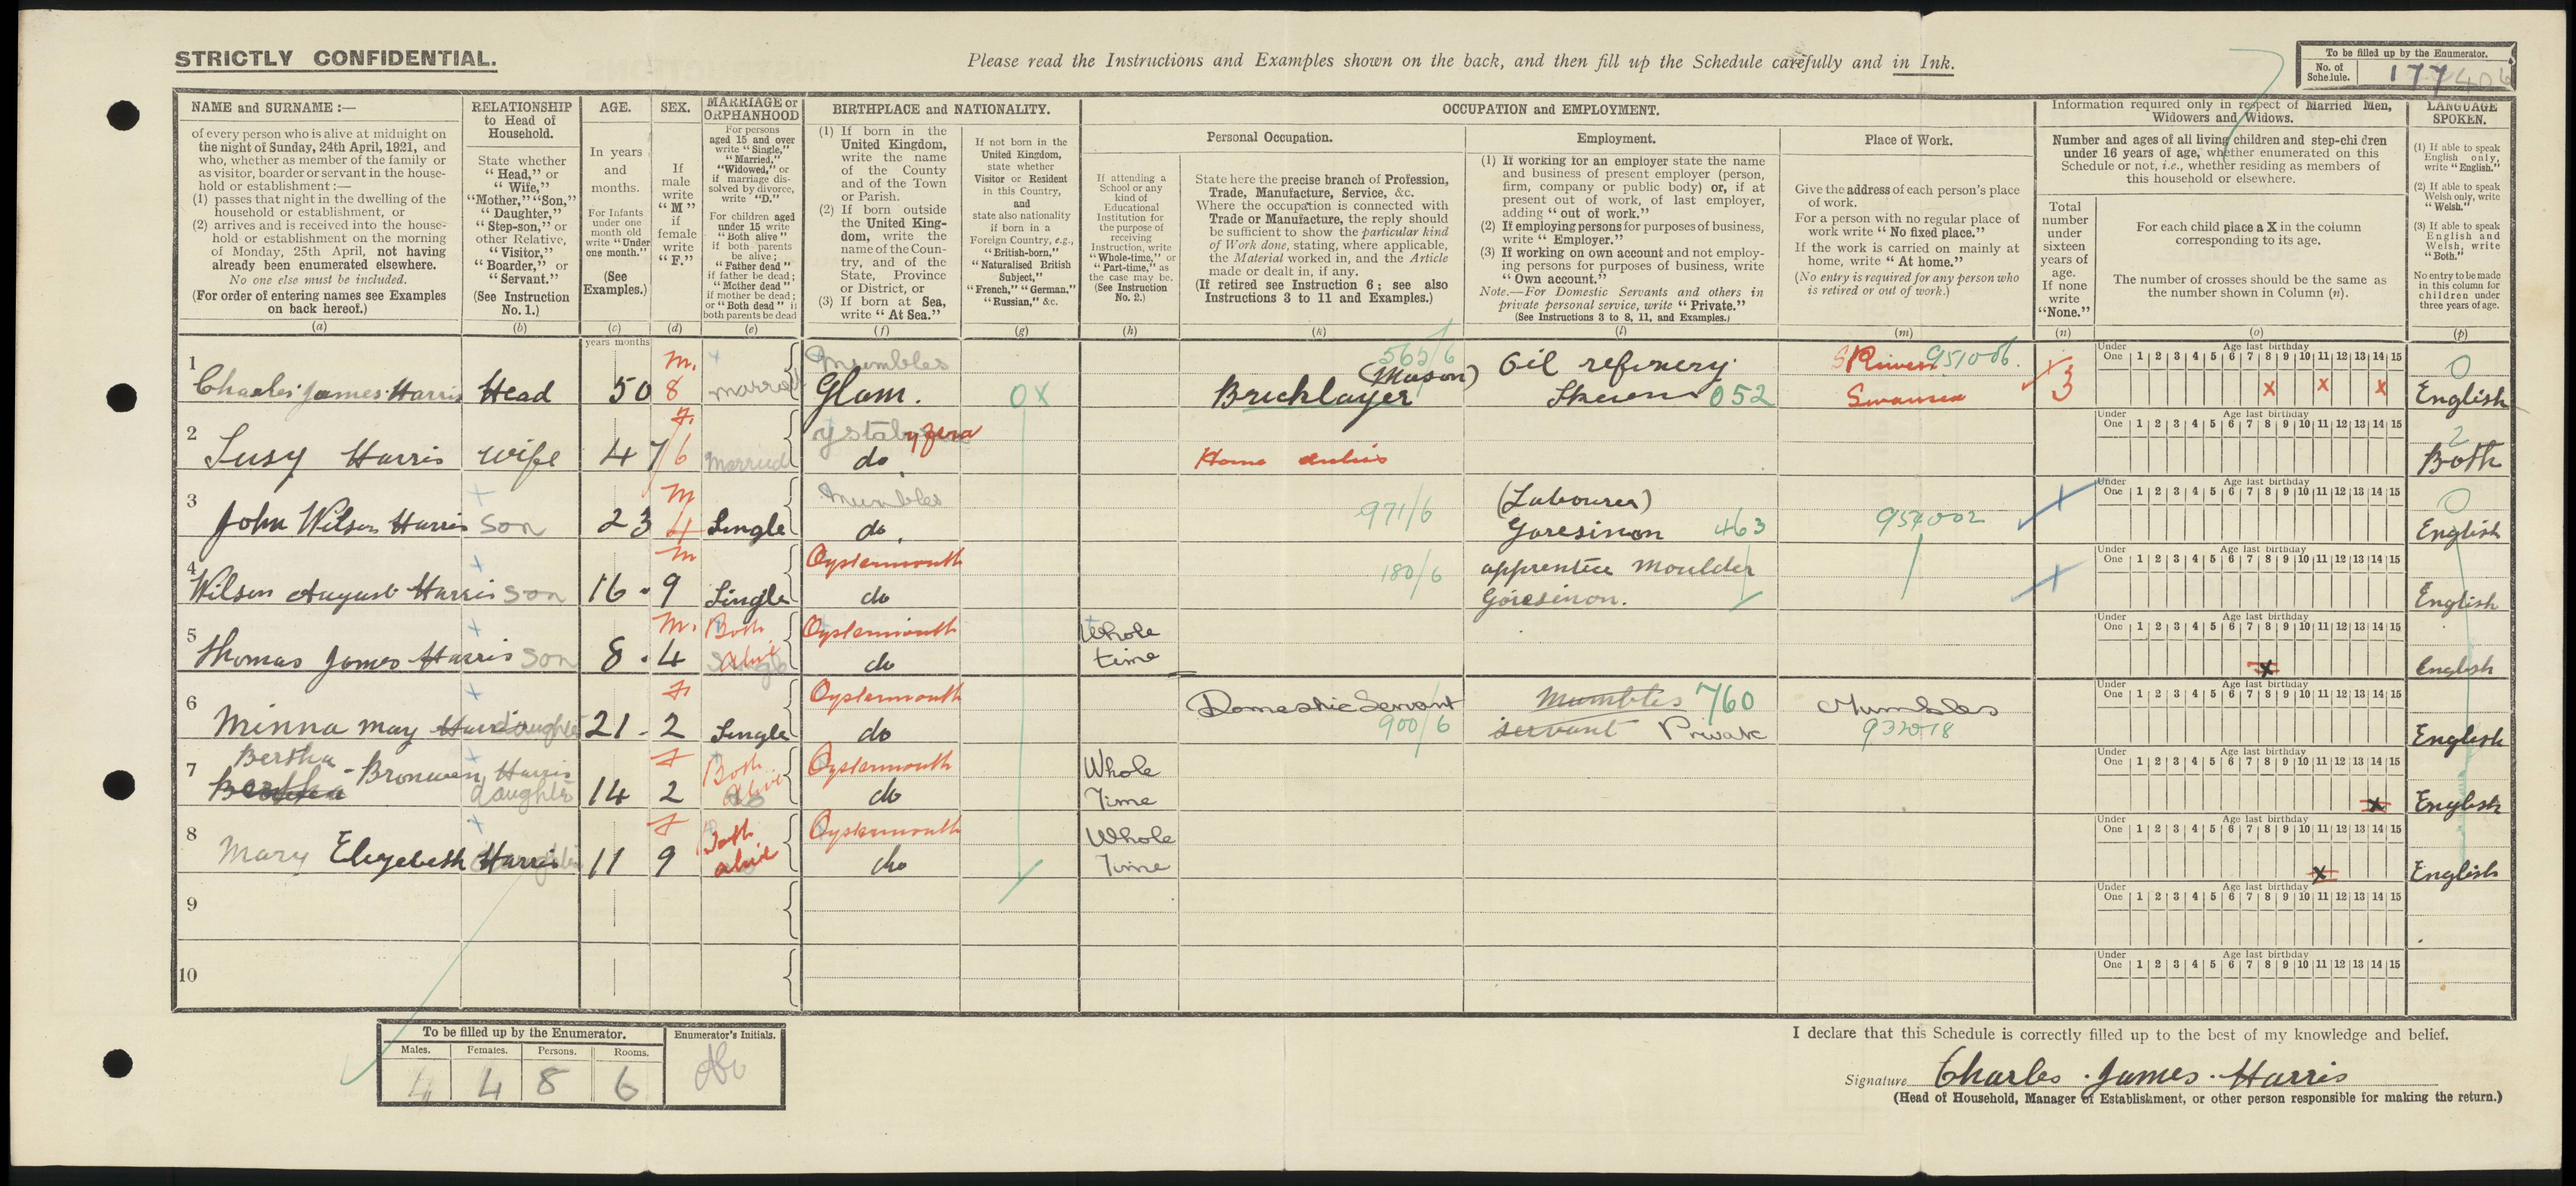 STRICTLY CONFIDENTIAL.
Please read the Instructions and Examples shown on the back, and then fill up the Schedule carefully and in Ink.
To be filled up by the Enumerator.
No. of Schedule. 177
NAME and SURNAME :—
of every person who is alive at midnight on
the night of Sunday, 24th April, 1921, and
who, whether as member of the family or
as visitor, boarder or servant in the house-
hold or establishment :—
(1) passes that night in the dwelling of the
household or establishment, or
(2) arrives and is received into the house-
hold or establishment on the morning
of Monday, 25th April, not having
already been enumerated elsewhere.
No one else must be included.
(For order of entering names see Examples
on back hereof.)
(a)
RELATIONSHIP
to Head of
Household.
State whether
"Head," or
"Wife,"
"Mother," "Son,"
"Daughter,"
"Step-son," or
other Relative,
"Visitor,"
"Boarder," or
"Servant."
(See Instruction
No. 1.)
(b)
AGE.
In years
and
months.
For Infants
under one
month old
write "Under
one month."
(See
Examples.)
(c)
SEX.
If
male
write
"M"
if
female
write
"F."
(d)
MARRIAGE or
ORPHANHOOD
For persons
aged 15 and over
write "Single,"
"Married,"
"Widowed," or
if marriage dis-
solved by divorce,
write "D."
For children aged
under 15 write
"Both alive"
if both parents
be alive;
"Father dead"
if father be dead;
"Mother dead"
if mother be dead;
or "Both dead" if
both parents be dead
(e)
BIRTHPLACE and NATIONALITY.
(1) If born in the
United Kingdom,
write the name
of the County
and of the Town
or Parish.
(2) If born outside
the United King-
dom, write the
name of the Coun-
try, and of the
State, Province
or District, or
(3) If born at Sea,
write "At Sea."
(f)
If not born in the
United Kingdom,
state whether
Visitor or Resident
in this Country,
and
state also nationality
if born in a
Foreign Country, e.g.,
"British-born,"
"Naturalised British
Subject,"
"French," "German,"
"Russian," &c.
(g)
OCCUPATION and EMPLOYMENT.
If attending a
School or any
kind of
Educational
Institution for
the purpose of
receiving
Instruction, write
"Whole-time," or
"Part-time," as
the case may be.
(See Instruction
No. 2.)
(h)
Personal Occupation.
State here the precise branch of Profession,
Trade, Manufacture, Service, &c.
Where the occupation is connected with
Trade or Manufacture, the reply should
be sufficient to show the particular kind
of Work done, stating, where applicable,
the Material worked in, and the Article
made or dealt in, if any.
(If retired see Instruction 6; see also
Instructions 3 to 11 and Examples.)
(k)
Employment.
(1) If working for an employer state the name
and business of present employer (person,
firm, company or public body) or, if at
present out of work, of last employer,
adding "out of work."
(2) If employing persons for purposes of business,
write "Employer."
(3) If working on own account and not employ-
ing persons for purposes of business, write
"Own account."
Note.—For Domestic Servants and others in
private personal service, write "Private."
(See Instructions 3 to 8, 11, and Examples.)
(l)
Place of Work.
Give the address of each person's place
of work.
For a person with no regular place of
work write "No fixed place."
If the work is carried on mainly at
home, write "At home."
(No entry is required for any person who
is retired or out of work.)
(m)
Information required only in respect of Married Men,
Widowers and Widows.
Number and ages of all living children and step-children
under 16 years of age, whether enumerated on this
Schedule or not, i.e., whether residing as members of
this household or elsewhere.
Total
number
under
sixteen
years of
age.
If none
write
"None."
(n)
For each child place a X in the column
corresponding to its age.
The number of crosses should be the same as
the number shown in Column (n).
(o)
LANGUAGE
SPOKEN.
(1) If able to speak
English only,
write "English."
(2) If able to speak
Welsh only, write
"Welsh."
(3) If able to speak
English and
Welsh, write
"Both."
No entry to be made
in this column for
children under
three years of age.
(p)
years months
1 Charles James Harris Head 50 8 M. Married Mumbles Glam. OX Bricklayer (Mason) 565/6 Oil refinery Skewen 052 Swansea 951006 3 X X X 0 English
Under One 1 2 3 4 5 6 7 8 9 10 11 12 13 14 15
Age last birthday
2 Lusy Harris Wife 47 6 F. Married Ystalyfera do Home duties 2 Both
Under One 1 2 3 4 5 6 7 8 9 10 11 12 13 14 15
Age last birthday
3 John Wilson Harris Son 23 4 M Single Mumbles do 971/6 (Labourer) Goresinon 463 954002 0 English
Under One 1 2 3 4 5 6 7 8 9 10 11 12 13 14 15
Age last birthday
4 Wilson August Harris Son 16 9 M Single Oystermouth do 180/6 apprentice Moulder Goresinon. English
Under One 1 2 3 4 5 6 7 8 9 10 11 12 13 14 15
Age last birthday
5 Thomas James Harris Son 8 4 M. Both Alive Oystermouth do Whole time X English
Under One 1 2 3 4 5 6 7 8 9 10 11 12 13 14 15
Age last birthday
6 Minna May Harris daughter 21 2 F. Single Oystermouth do Domestic Servant 900/6 Mumbles servant Private 760 Mumbles 932018 English
Under One 1 2 3 4 5 6 7 8 9 10 11 12 13 14 15
Age last birthday
7 Bertha Bronwen Harris daughter 14 2 F Both Alive Oystermouth do Whole Time X English
Under One 1 2 3 4 5 6 7 8 9 10 11 12 13 14 15
Age last birthday
8 Mary Elizebeth Harris 11 9 F Both alive Oystermouth do Whole Time X English
Under One 1 2 3 4 5 6 7 8 9 10 11 12 13 14 15
Age last birthday
9
Under One 1 2 3 4 5 6 7 8 9 10 11 12 13 14 15
Age last birthday
10
Under One 1 2 3 4 5 6 7 8 9 10 11 12 13 14 15
Age last birthday
To be filled up by the Enumerator.
Males. Females. Persons. Rooms.
4 4 8 6
Enumerator's Initials.
I declare that this Schedule is correctly filled up to the best of my knowledge and belief.
Signature Charles James Harris
(Head of Household, Manager of Establishment, or other person responsible for making the return.)